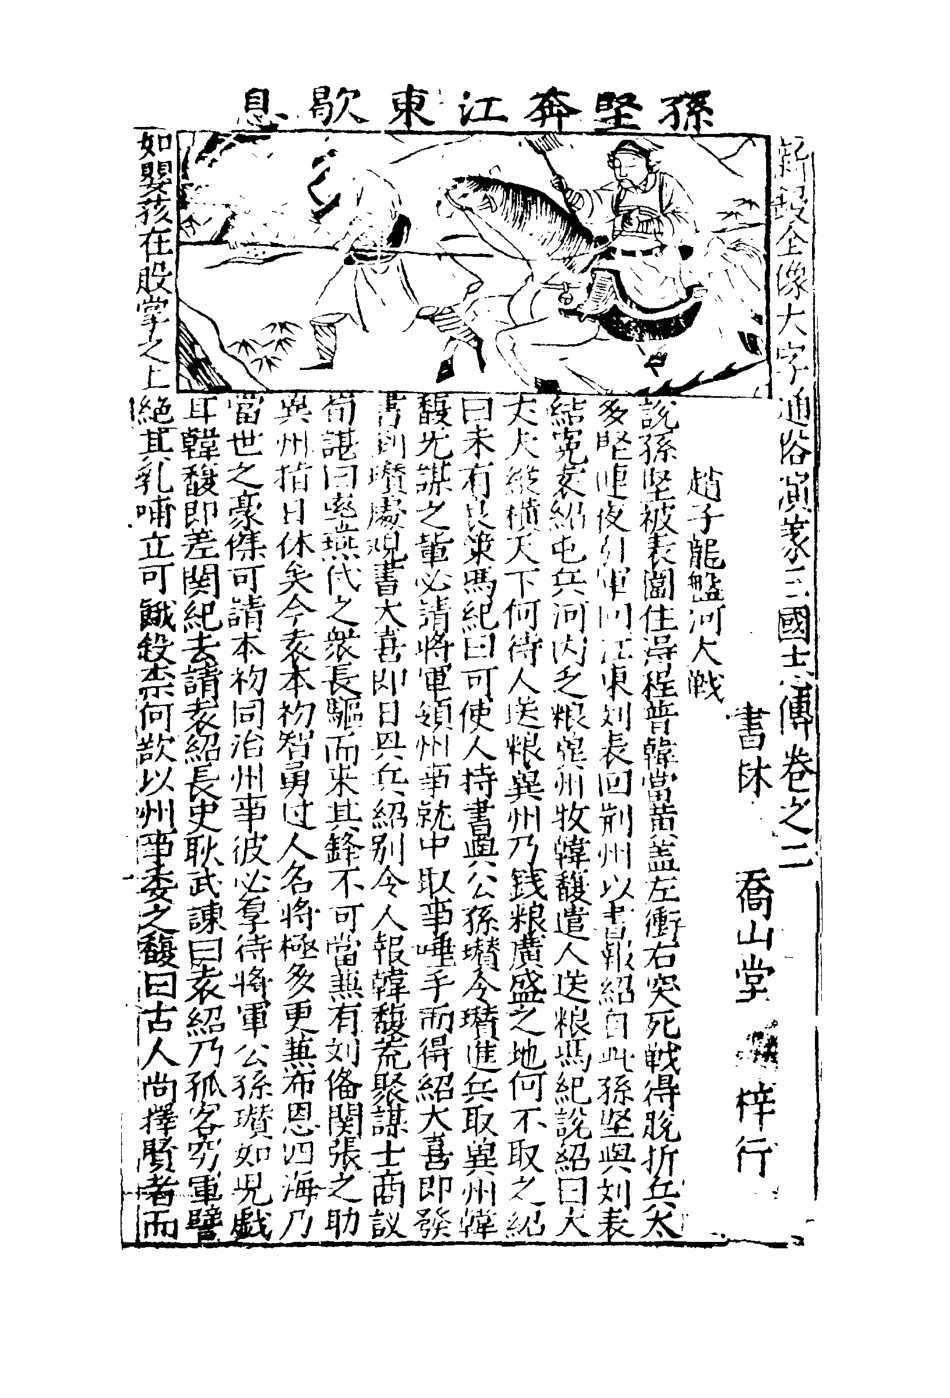 孫堅奔江東歇息
新鋟全像大字通俗演義三國志傳卷之二
書林　喬山堂　梓行
趙子龍盤河大戰
說孫堅被表圍住得程普韓當黃盖左衝右突死戰得脫折兵太
多堅連夜引軍回江東刘表回荊州以書報紹自此孫堅與刘表
結寃袁紹屯兵河內乏粮冀州牧韓馥遣人送粮馮紀說紹曰大
丈夫縱橫天下何待人送粮冀州乃錢粮廣盛之地何不取之紹
曰未有良策馮紀曰可使人持書與公孫瓚令瓚進兵取冀州韓
馥无謀之輩必請將軍領州事就中取事唾手而得紹大喜即發
書到瓚處覌書大喜即日興兵紹别令人報韓馥荒聚謀士商議
荀諶曰燕代之衆長驅而来其鋒不可當蕪有刘俻関張之助
冀州指日休矣今袁本初智勇过人名將極多更蕪布恩四海乃
當世之豪傑可請本初同治州事彼必享待將軍公孫瓚如児戯
耳韓馥即差関紀去請袁紹長史耿武諫曰袁紹乃孤客穷軍譬
如嬰孩在股掌之上絕其乳哺立可餓殺柰何欲以州事委之馥曰古人尚擇賢者而